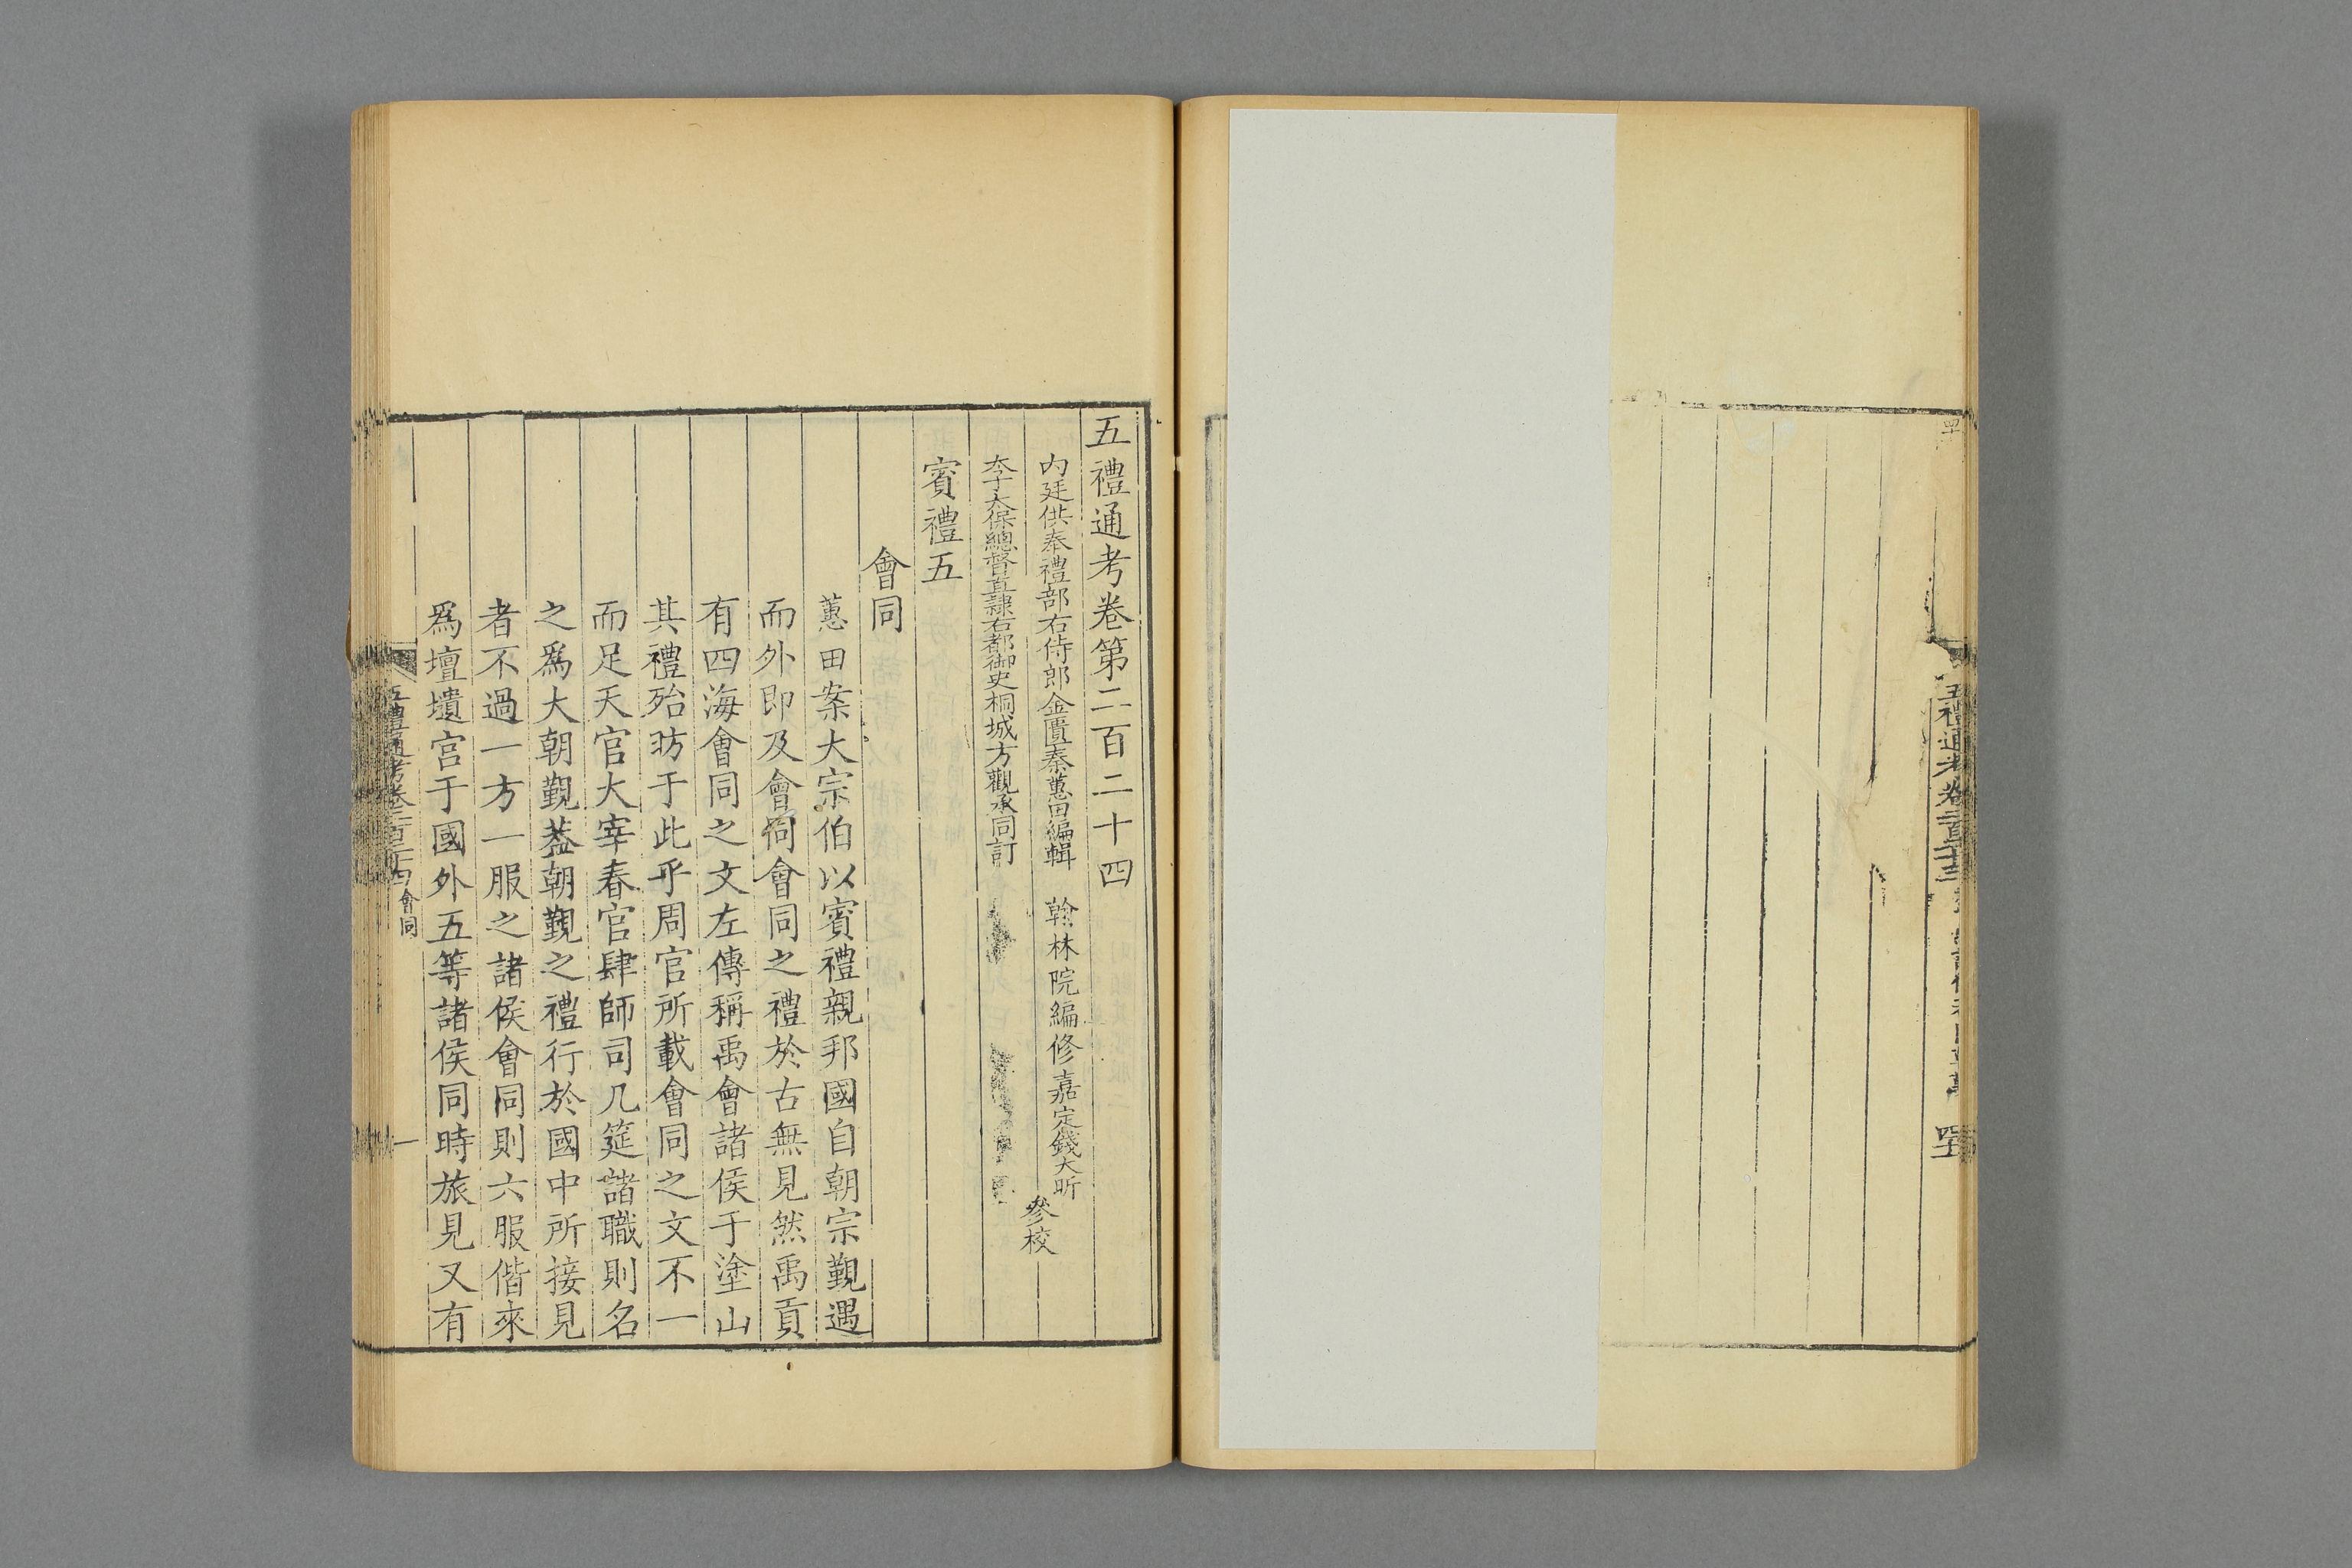 五禮通考卷第二百二十四
內廷供奉禮部右侍郎金匱秦蕙田編輯 翰林院編修嘉定錢大昕
參校
太子太保總督直隸右都御史桐城方觀承同訂
賓禮五
會同
蕙田案大宗伯以賓禮親邦國自朝宗覲遇
而外即及會同會同之禮於古無見然禹貢
有四海會同之文左傳稱禹會諸侯于塗山
其禮殆昉于此乎周官所載會同之文不一
而足天官大宰春官肆師司几筵諸職則名
之爲大朝覲蓋朝覲之禮行於國中所接見
者不過一方一服之諸侯會同則六服偕來
爲壇壝宮于國外五等諸侯同時旅見又有
五禮通考卷二百二十四 會同 一